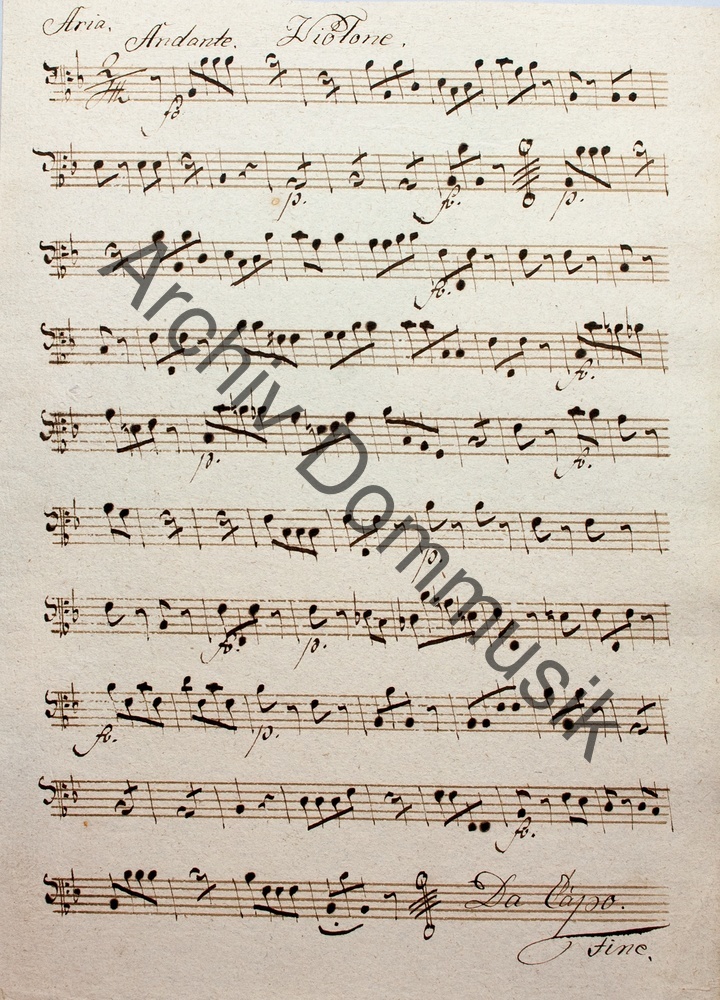 Aria.
Andante. Violone.
fo.
p. fo. p.
fo.
fo.
p. fo.
p.
fo. p.
fo. p.
fo.
Da Capo.
Fine.
Archiv Dommusik